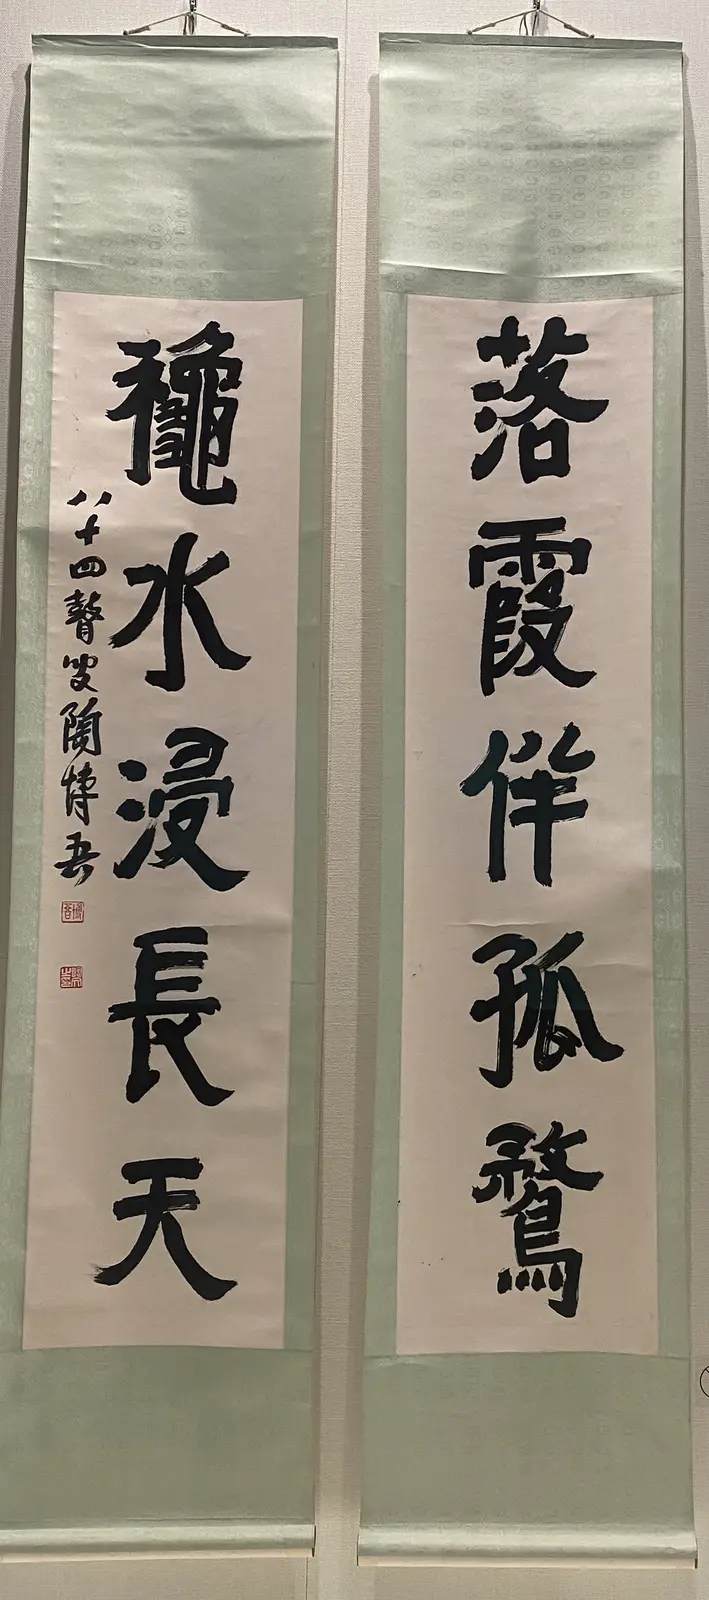 落霞伴孤鶩
龝水浸長天
八十四瞽叟陶博吾